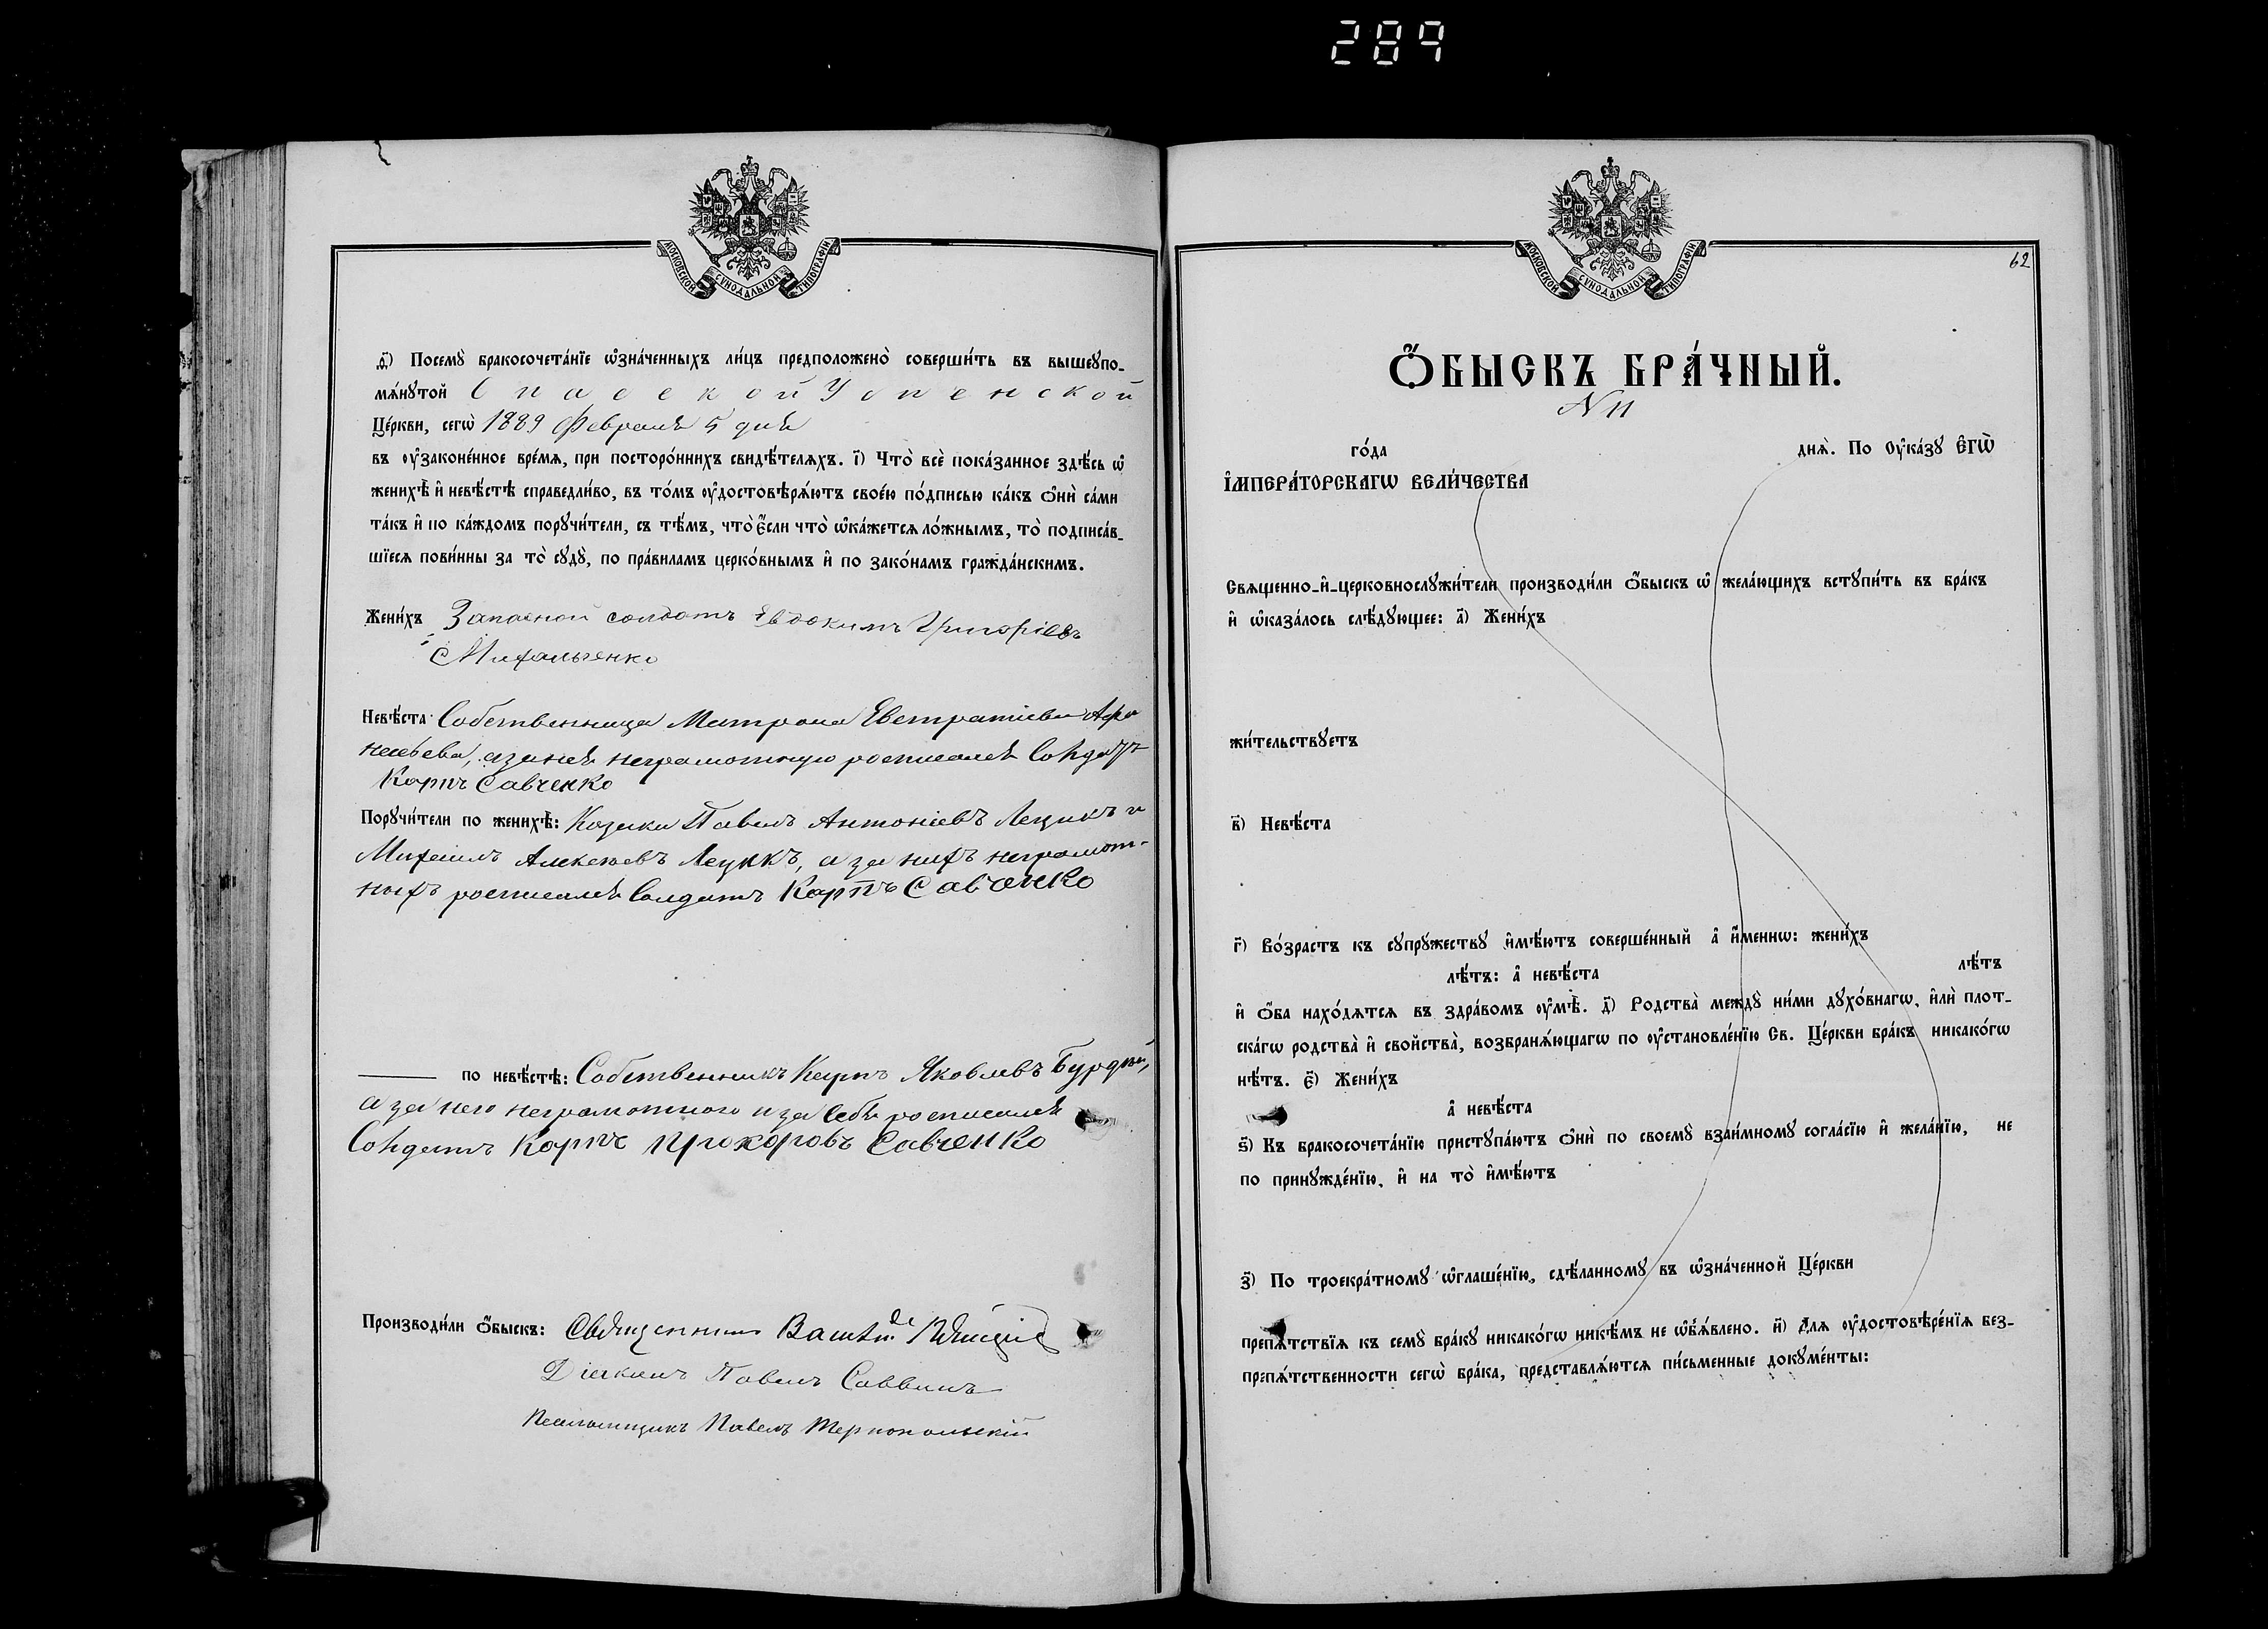 289
МОСКОВСКОЙ СѴНОДАЛЬНОЙ ТИПОГРАФІИ
ѳ҃) Посемꙋ̀ бракосочета́нїе ѡ҆зна́ченныхъ ли́цъ предположено̀ соверши́ть въ вышеꙋпо-
мѧ́нꙋтой Спасской Успенской
Це́ркви, сегѡ̀ 1889 Февраля 5 дня
въ ᲂу҆законе́нное вре́мѧ, при посторо́ннихъ свидѣ́телѧхъ. і҃) Что̀ всѐ пока́занное здѣ́сь ѡ҆
женихѣ̀ и҆ невѣ́стѣ справедли́во, въ то́мъ ᲂу҆достовѣрѧ́ютъ свое́ю по́дписью ка́къ ѻ҆нѝ са́ми
та́къ и҆ по ка́ждомъ порꙋчи́тели, съ тѣ́мъ, что̀ є҆́сли что̀ ѡ҆ка́жетсѧ ло́жнымъ, то̀ подписа́в-
шїесѧ пови́нны за то̀ сꙋдꙋ̀, по пра́виламъ церко́внымъ и҆ по зако́намъ гражда́нскимъ.
Жени́хъ Запасной солдатъ Евдокимъ Григоріевъ
Михальченко
Невѣ́ста Собственница Матрона Евстратіева Афа
насьева, а за нея неграмотную росписался Солдатъ
Карпъ Савченко
Порꙋчи́тели по женихѣ̀: Козаки Павелъ Антоніевъ Лецикъ и
Михаилъ Алексеевъ Лецикъ, а за нихъ неграмот-
ныхъ росписался Солдатъ Карпъ Савченко
по невѣ́стѣ: Собственникъ Карпъ Яковлевъ
а за него неграмотного и за себя росписался
Солдатъ Карпъ Прохоровъ Савченко
Производи́ли ѻ҆́быскъ: Священникъ
Діаконъ Павелъ Саввинъ
Псаломщикъ Павелъ Тернопольскій
МОСКОВСКОЙ СѴНОДАЛЬНОЙ ТИПОГРАФІИ
62
Ѻ҆́БЫСКЪ БРА́ЧНЫЙ.
N 11
го́да днѧ̀. По Оу҆ка́зꙋ Є҆ГѠ̀
І҆МПЕРА́ТОРСКАГѠ ВЕЛИ́ЧЕСТВА
Свѧщенно-и҆-церковнослꙋжи́тели производи́ли ѻ҆́быскъ ѡ҆ жела́ющихъ встꙋпи́ть въ бра́къ
и҆ ѡ҆каза́лось слѣ́дꙋющее: а҃) Жени́хъ
жи́тельствꙋетъ
в҃) Невѣ́ста
г҃) Во́зрастъ къ сꙋпрꙋ́жествꙋ и҆мѣ́ютъ соверше́нный а҆ и҆́меннѡ: жени́хъ
лѣ́тъ: а҆ невѣ́ста лѣ́тъ
и҆ ѻ҆́ба нахо́дѧтсѧ въ здра́вомъ ᲂу҆мѣ̀. д҃) Родства̀ междꙋ̀ ни́ми дꙋхо́внагѡ, и҆лѝ плот-
ска́гѡ родства̀ и҆ свойства̀, возбранѧ́ющагѡ по ᲂу҆становле́нїю Св. Це́ркви бра́къ никако́гѡ
нѣ́тъ. є҃) Жени́хъ
а҆ невѣ́ста
ѕ҃) Къ бракосочета́нїю пристꙋпа́ютъ ѻ҆нѝ по своемꙋ̀ взаи́мномꙋ согла́сїю и҆ жела́нїю, не
по принꙋжде́нїю, и҆ на то̀ и҆мѣ́ютъ
з҃) По троекра́тномꙋ ѡ҆глаше́нїю, сдѣ́ланномꙋ въ ѡ҆зна́ченной Це́ркви
препѧ́тствїѧ къ семꙋ̀ бра́кꙋ никако́гѡ никѣ́мъ не ѡ҆б̾ѧ́влено. и҃) Длѧ ᲂу҆достовѣре́нїѧ без-
препѧ́тственности сегѡ̀ бра́ка, представлѧ́ютсѧ пи́сьменные докꙋме́нты: